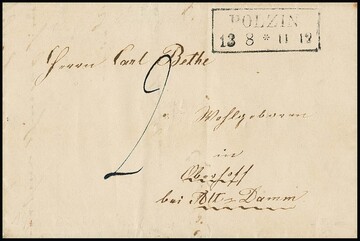 POLZIN
13 8 * 11 12
Herrn Carl Bethe
2
Wohlgeboren
in
Oberhoff
bei Alt-Damm